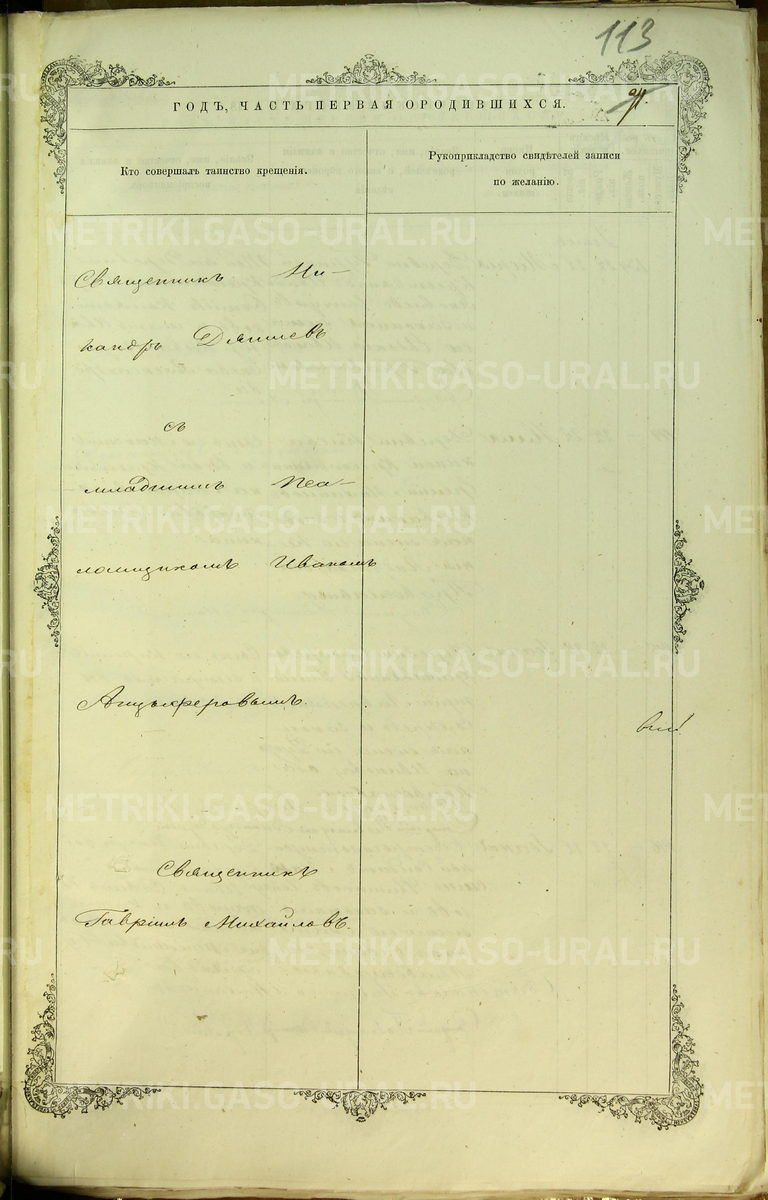 113
ГОДЪ, ЧАСТЬ ПЕРВАЯ ОРОДИВШИХСЯ.
Кто совершалъ таинство крещенія.
Рукоприкладство свидѣтелей записи
по желанію.
Священникъ Ни-
кандръ
съ
младшимъ Пса-
ломщикомъ Иваномъ
Анцыферовымъ.
Священникъ
Гавріилъ Михайловъ.
METRIKI.GASO-URAL.RU